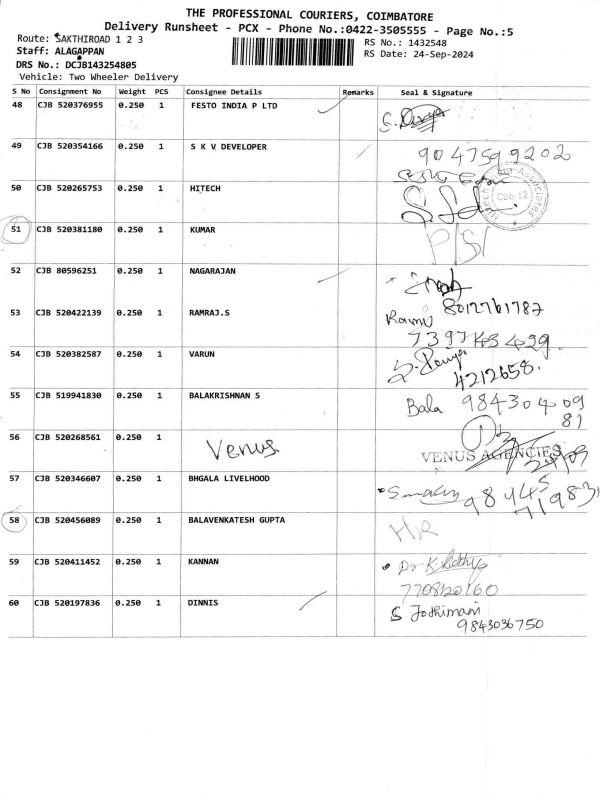 THE PROFESSIONAL COURIERS, COIMBATORE
Delivery Runsheet - PCX - Phone No.:0422-3505555 - Page No.:5
Route: SAKTHIROAD 1 2 3
RS No.: 1432548
Staff: ALAGAPPAN
RS Date: 24-Sep-2024
DRS No.: DCJB143254805
Vehicle: Two Wheeler Delivery
S No Consignment No Weight PCS Consignee Details Remarks Seal & Signature
48 CJB 520376955 0.250 1 FESTO INDIA P LTD
49 CJB 520354166 0.250 1 S K V DEVELOPER 9047599202
50 CJB 520265753 0.250 1 HITECH
51 CJB 520381180 0.250 1 KUMAR
52 CJB 80596251 0.250 1 NAGARAJAN
53 CJB 520422139 0.250 1 RAMRAJ.S 8012761787
54 CJB 520382587 0.250 1 VARUN
4212658.
55 CJB 519941830 0.250 1 BALAKRISHNAN S Bala 98430409
81
56 CJB 520268561 0.250 1 Venus VENUS AGENCIES
24/09
57 CJB 520346607 0.250 1 BHGALA LIVELHOOD
58 CJB 520456089 0.250 1 BALAVENKATESH GUPTA HR
59 CJB 520411452 0.250 1 KANNAN
60 CJB 520197836 0.250 1 DINNIS S Jothimani
9843036750